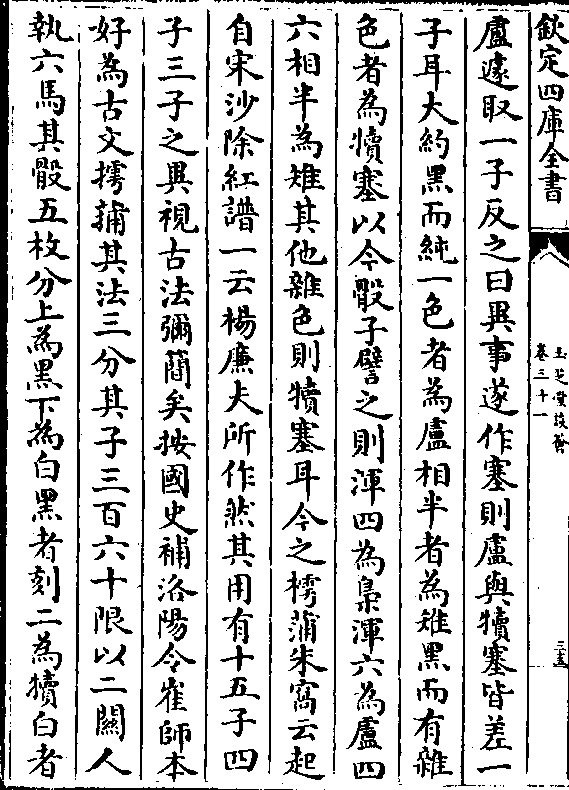 欽定四庫全書
玉芝堂談薈
卷三十一
二十五
盧遽取一子反之曰異事遂作塞則盧與犢塞皆差一
子耳大約黑而純一色者為盧相半者為雉黑而有雜
色者為犢塞以今骰子譬之則渾四為梟渾六為盧四
六相半為雉其他雜色則犢塞耳今之樗蒲朱窩云起
自宋沙除紅譜一云楊廉夫所作然其用有十五子四
子三子之異視古法彌簡矣按國史補洛陽令崔師本
好為古文摴蒱其法三分其子三百六十限以二關人
執六馬其骰五枚分上為黑下為白黑者刻二為犢白者